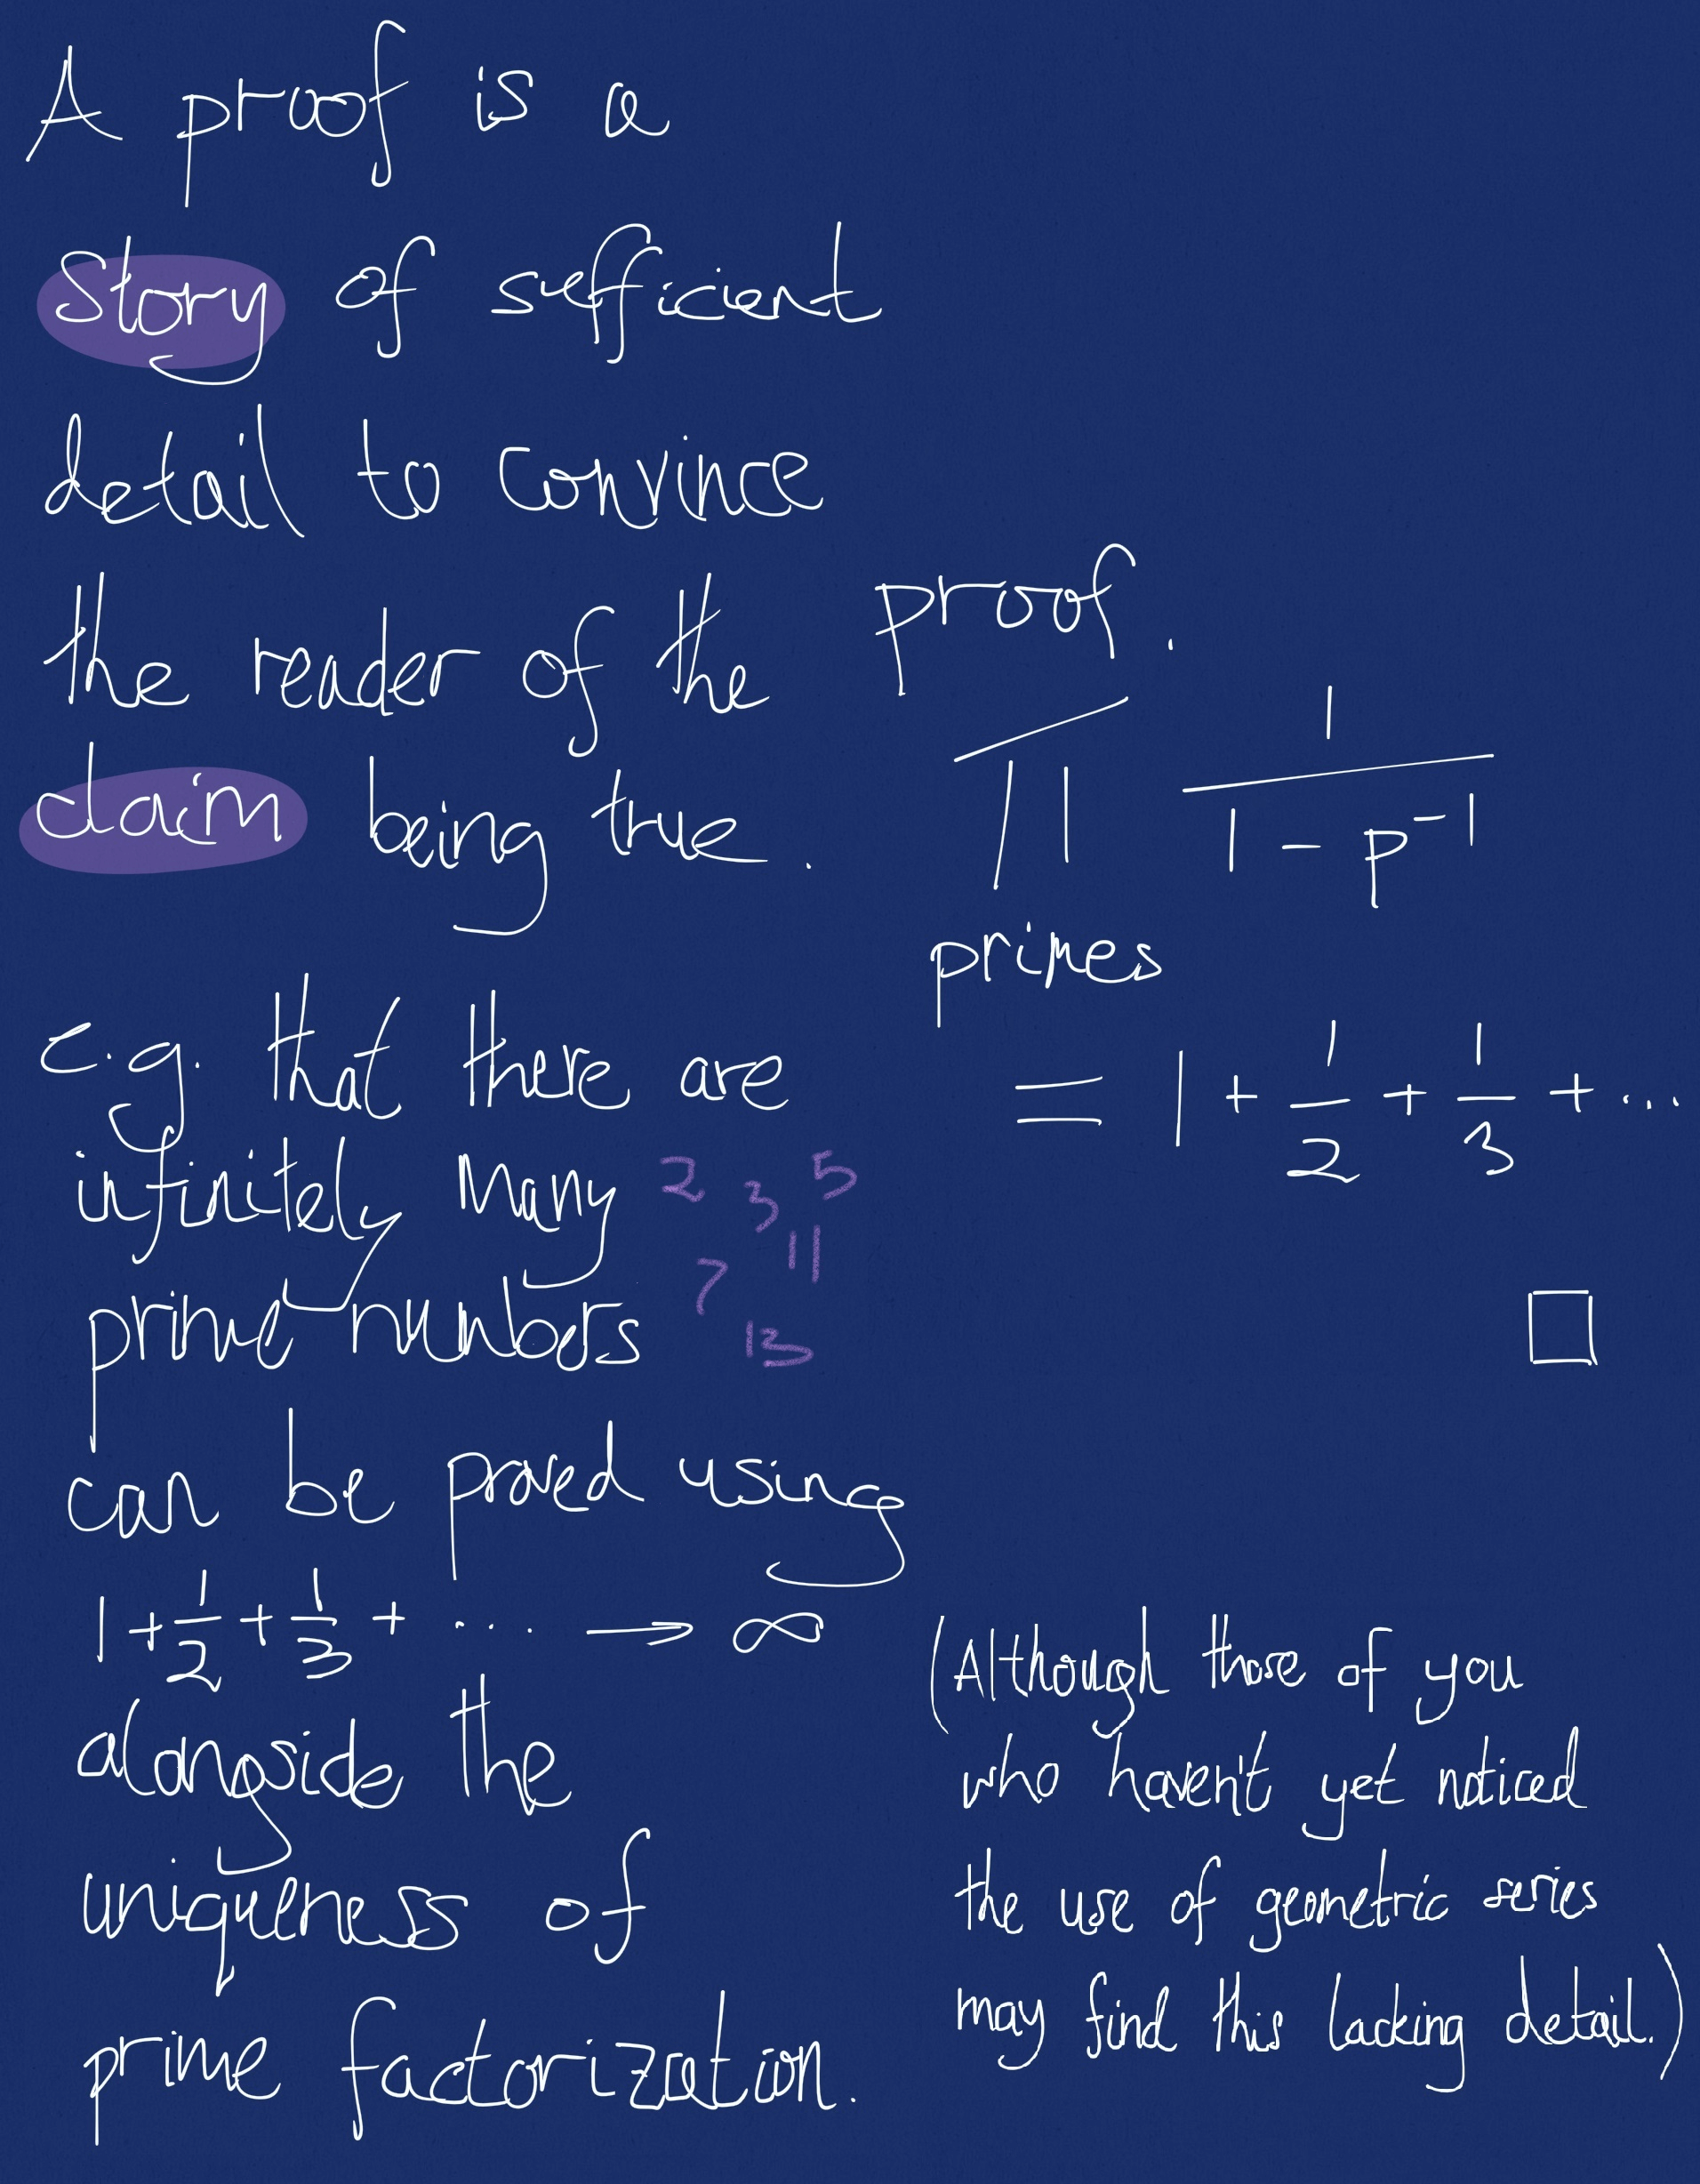 A proof is a
story of sufficient
detail to convince
the reader of the
claim being true.
e.g. that there are
infinitely many
prime numbers
2 3 5
7 11
13
can be proved using
1 + 1/2 + 1/3 + ... → ∞
alongside the
uniqueness of
prime factorization.
proof.
∏ 1/(1 - p⁻¹)
primes
= 1 + 1/2 + 1/3 + ...
□
(Although those of you
who haven't yet noticed
the use of geometric series
may find this lacking detail.)